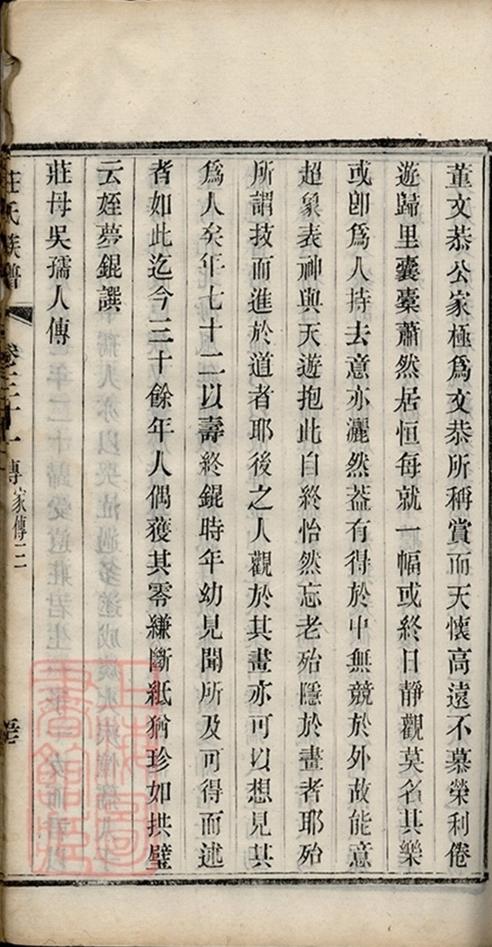 董文恭公家極爲文恭所稱賞而天懷高遠不慕榮利倦
遊歸里囊橐蕭然居恒每就一幅或終日靜觀莫名其樂
或卽爲人持去意亦灑然葢有得於中無競於外故能意
超象表神與天遊抱此自終怡然忘老殆隱於畫者耶殆
所謂技而進於道者耶後之人觀於其畫亦可以想見其
爲人矣年七十二以壽終錕時年幼見聞所及可得而述
者如此迄今三十餘年人偶獲其零縑斷紙猶珍如拱璧
云姪夢錕譔
莊母吳孺人傳
莊氏族譜
卷三十一
傳
家傳三